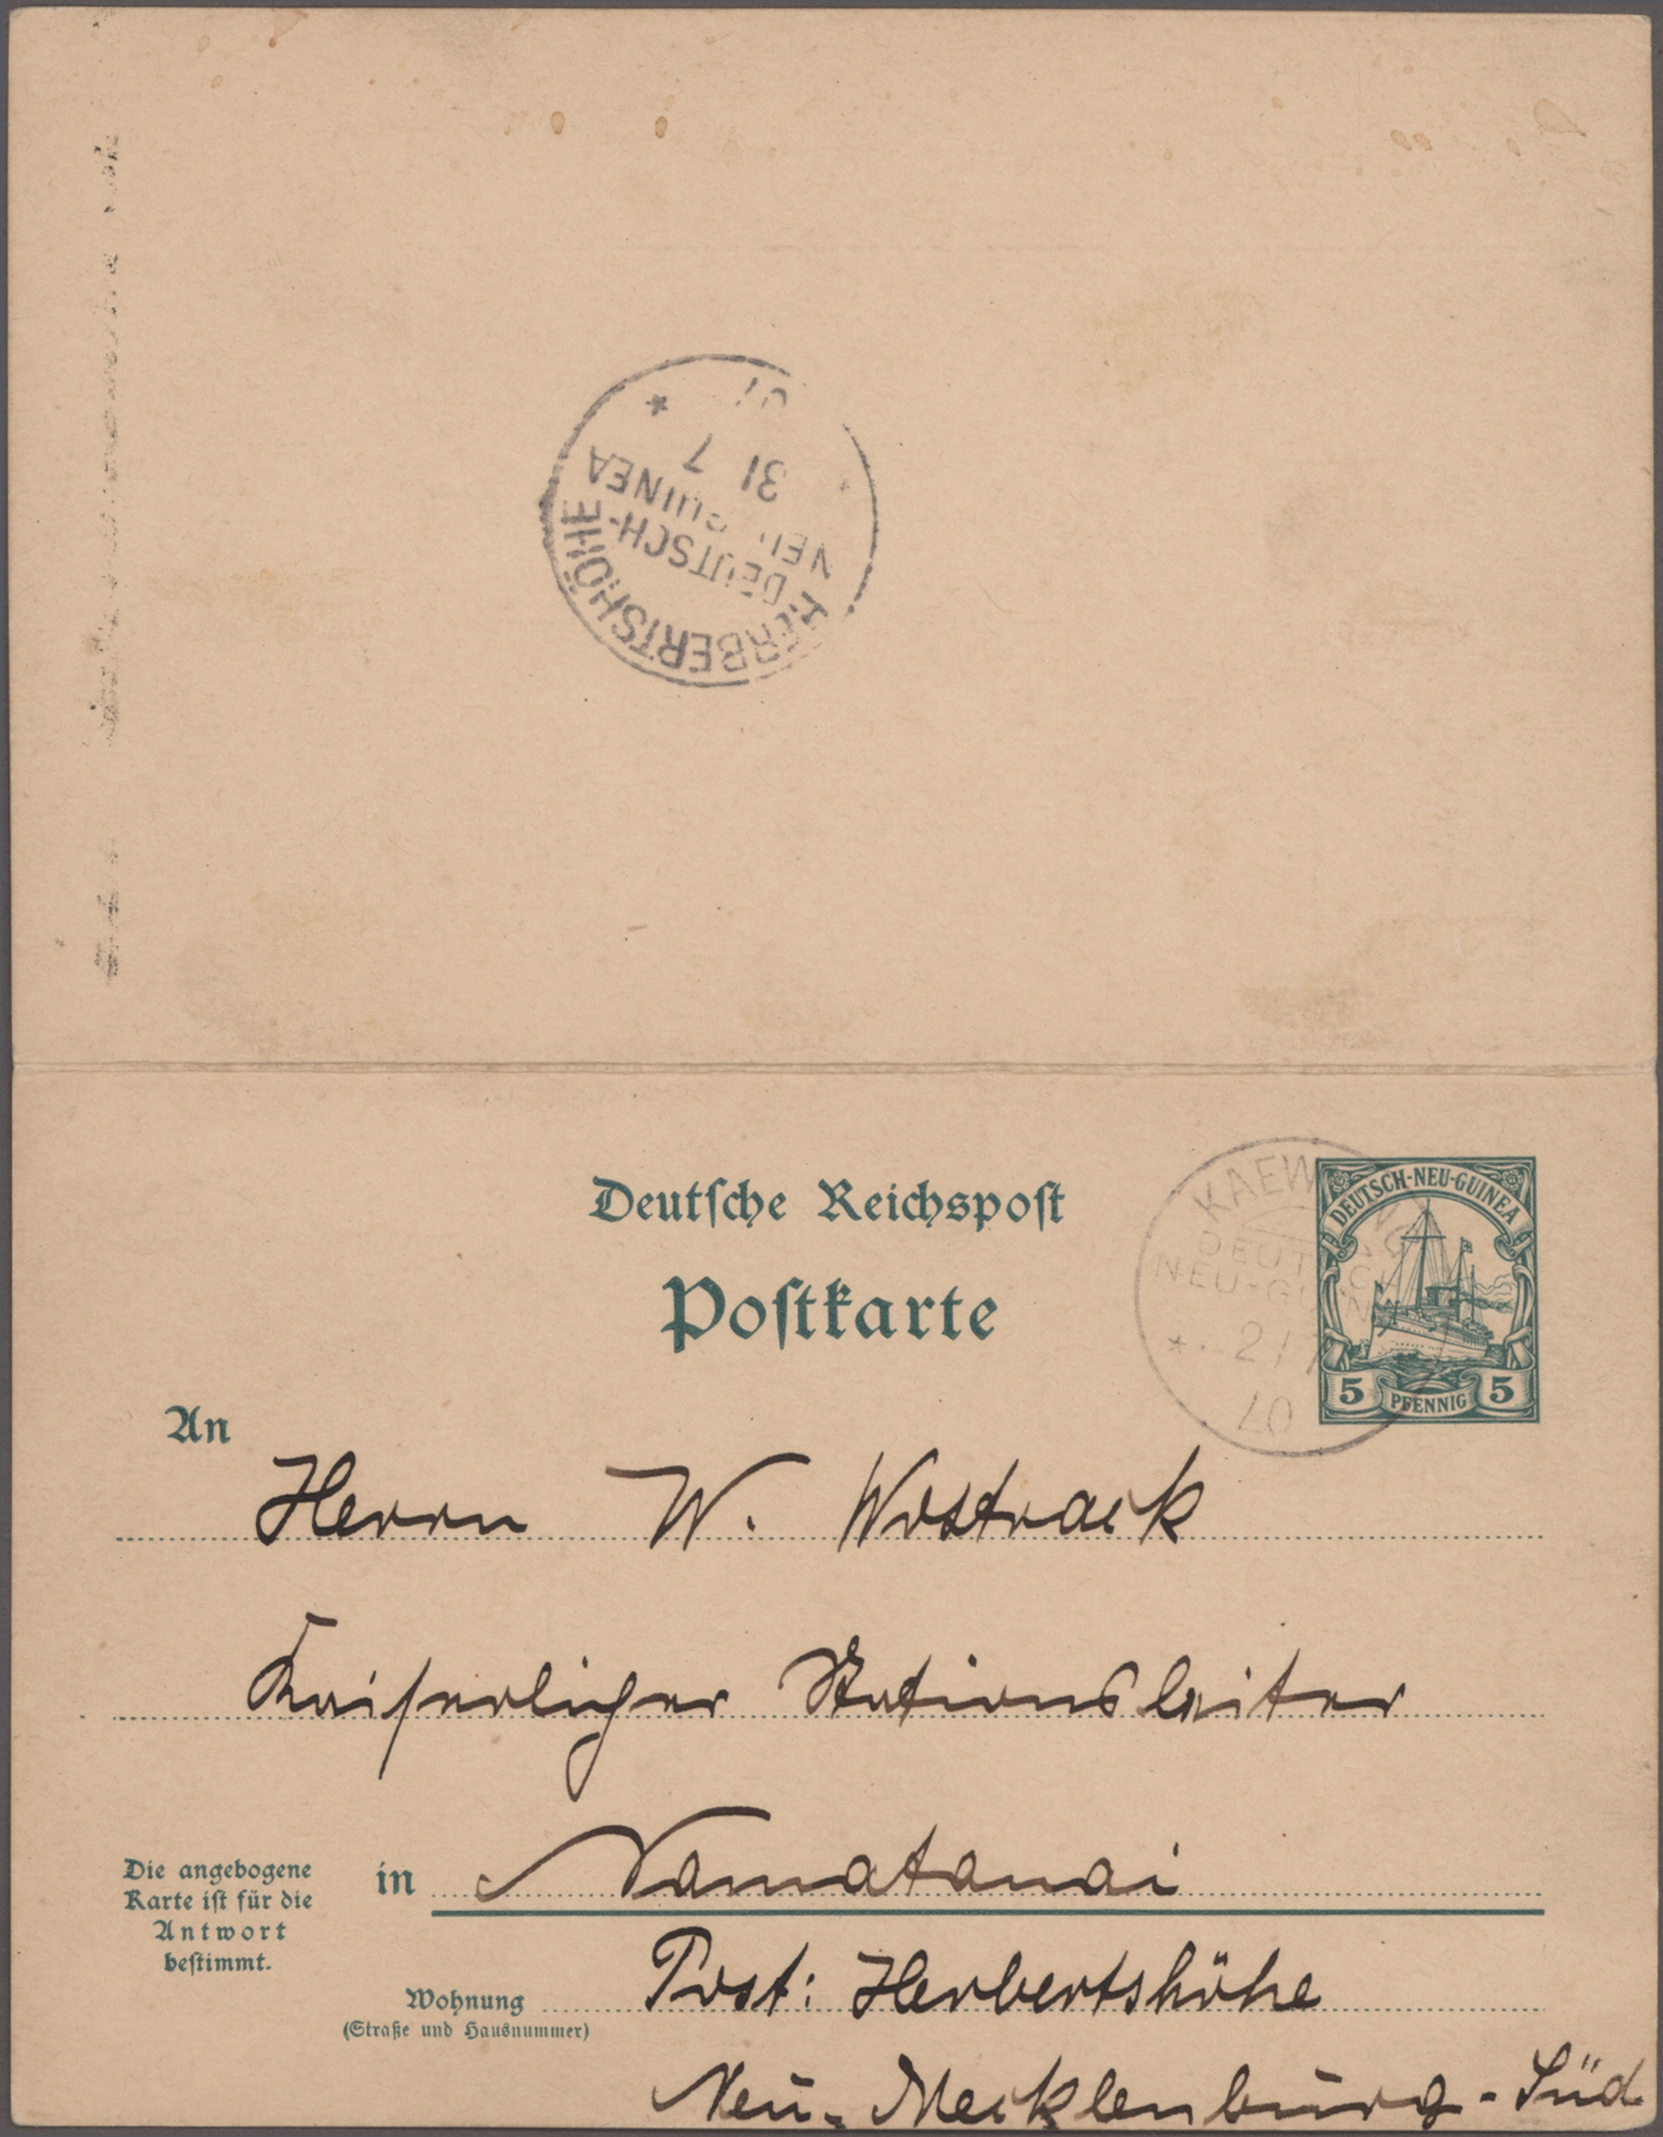 HERBERTSHÖHE
DEUTSCH-
NEU GUINEA
31 7
07
Deutsche Reichspost
Postkarte
KAEW
DEUTSCH
NEU-GUIN
* 2/7
07
DEUTSCH-NEU-GUINEA
5 PFENNIG 5
An
Herrn W. Wostrack
Kaiserlicher Stationsleiter
in Namatanai
Die angebogene
Karte ist für die
Antwort
bestimmt.
Post: Herbertshöhe
Wohnung
(Straße und Hausnummer)
Neu-Mecklenburg-Süd